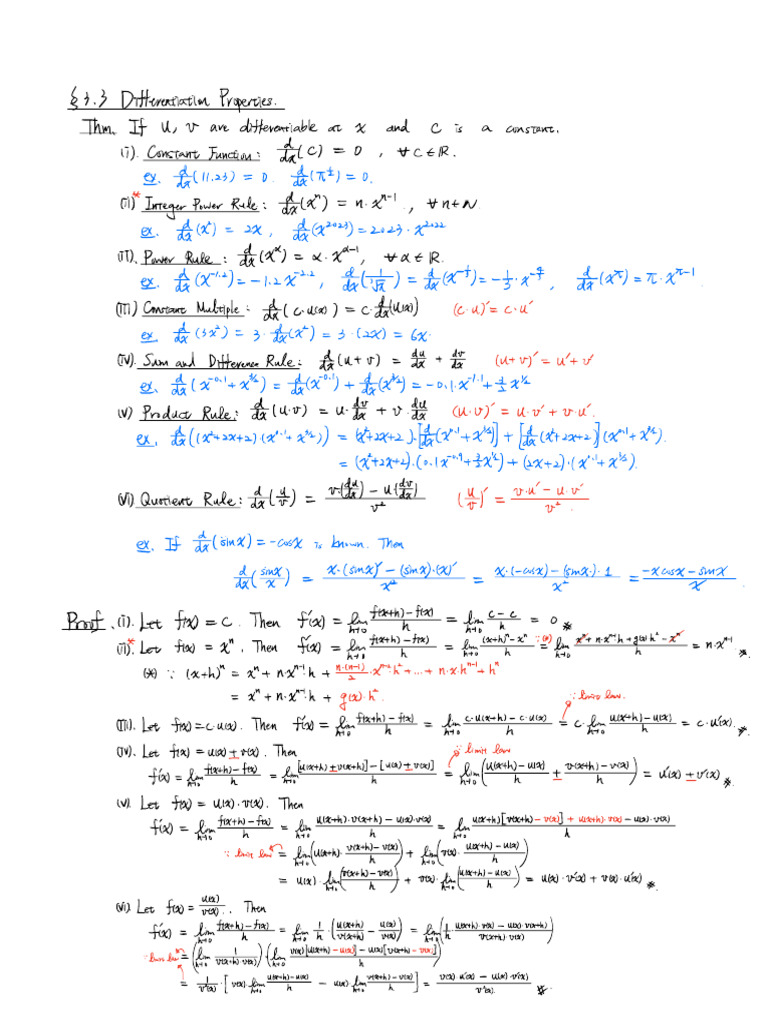 §3.3 Differentiation Properties.
Thm. If u, v are differentiable at x and c is a constant.
(i). Constant Function: d/dx (c) = 0 , ∀c∈ℝ.
ex. d/dx (11.23) = 0. d/dx (π^½) = 0.
(ii)* Integer Power Rule: d/dx (x^n) = n·x^(n-1) , ∀n∈ℕ
ex. d/dx (x²) = 2x , d/dx (x^2023) = 2023·x^2022
(ii). Power Rule: d/dx (x^α) = α·x^(α-1), ∀α∈ℝ.
(iii) Constant Multiple: d/dx (c·u(x)) = c·d/dx (u(x)) (c·u)' = c·u'
ex. d/dx (3x²) = 3·d/dx (x²) = 3·(2x) = 6x.
(iv). Sum and Difference Rule: d/dx (u+v) = du/dx + dv/dx (u+v)' = u'+v'
(v) Product Rule: d/dx (u·v) = u·dv/dx + v·du/dx (u·v)' = u·v' + v·u'.
(vi) Quotient Rule: d/dx (u/v) = (v(du/dx) - u(dv/dx))/v² (u/v)' = (v·u' - u·v')/v².
ex. If d/dx (sinx) = -cosx is known. Then
d/dx (sinx/x) = (x·(sinx)' - (sinx)·(x)')/x² = (x·(-cosx) - (sinx)·1)/x² = (-xcosx - sinx)/x².
Proof. (i). Let f(x) = c. Then f'(x) = lim h→0 (f(x+h)-f(x))/h = lim h→0 (c-c)/h = 0 #
(ii)* Let f(x) = x^n. Then f'(x) = lim h→0 (f(x+h)-f(x))/h = lim h→0 ((x+h)^n - x^n)/h ∵(*) = lim h→0 (x^n + n·x^(n-1)h + g(x)h² - x^n)/h = n·x^(n-1) #.
(*) ∵ (x+h)^n = x^n + n·x^(n-1)·h + n·(n-1)/2·x^(n-2)·h² + ... + n·x·h^(n-1) + h^n
= x^n + n·x^(n-1)·h + g(x)·h².
∵ limit law.
(iii). Let f(x) = c·u(x). Then f'(x) = lim h→0 (f(x+h)-f(x))/h = lim h→0 (c·u(x+h) - c·u(x))/h = c·lim h→0 (u(x+h)-u(x))/h = c·u'(x). #
(iv). Let f(x) = u(x) ± v(x). Then ∵ limit law
f'(x) = lim h→0 (f(x+h)-f(x))/h = lim h→0 ([u(x+h) ± v(x+h)] - [u(x) ± v(x)])/h = lim h→0 ((u(x+h)-u(x))/h ± (v(x+h)-v(x))/h) = u'(x) ± v'(x) #
(v). Let f(x) = u(x)·v(x). Then
f'(x) = lim h→0 (f(x+h)-f(x))/h = lim h→0 (u(x+h)·v(x+h) - u(x)·v(x))/h = lim h→0 (u(x+h)[v(x+h) - v(x)] + u(x+h)·v(x) - u(x)·v(x))/h
∵ limit law = lim h→0 (u(x+h)·(v(x+h)-v(x))/h) + lim h→0 (v(x)·(u(x+h)-u(x))/h)
= u(x)·lim h→0 (v(x+h)-v(x))/h + v(x)·lim h→0 (u(x+h)-u(x))/h = u(x)·v'(x) + v(x)·u'(x) #.
(vi). Let f(x) = u(x)/v(x). Then
f'(x) = lim h→0 (f(x+h)-f(x))/h = lim h→0 1/h·(u(x+h)/v(x+h) - u(x)/v(x)) = lim h→0 (1/h (u(x+h)·v(x) - u(x)·v(x+h))/(v(x+h)·v(x)))
∵ limit law = (lim h→0 1/(v(x+h)·v(x)))·(lim h→0 (v(x)[u(x+h) - u(x)] - u(x)[v(x+h) - v(x)])/h)
= 1/v²(x)·[v(x)·lim h→0 (u(x+h)-u(x))/h - u(x)·lim h→0 (v(x+h)-v(x))/h] = (v(x)·u'(x) - u(x)·v'(x))/v²(x). #